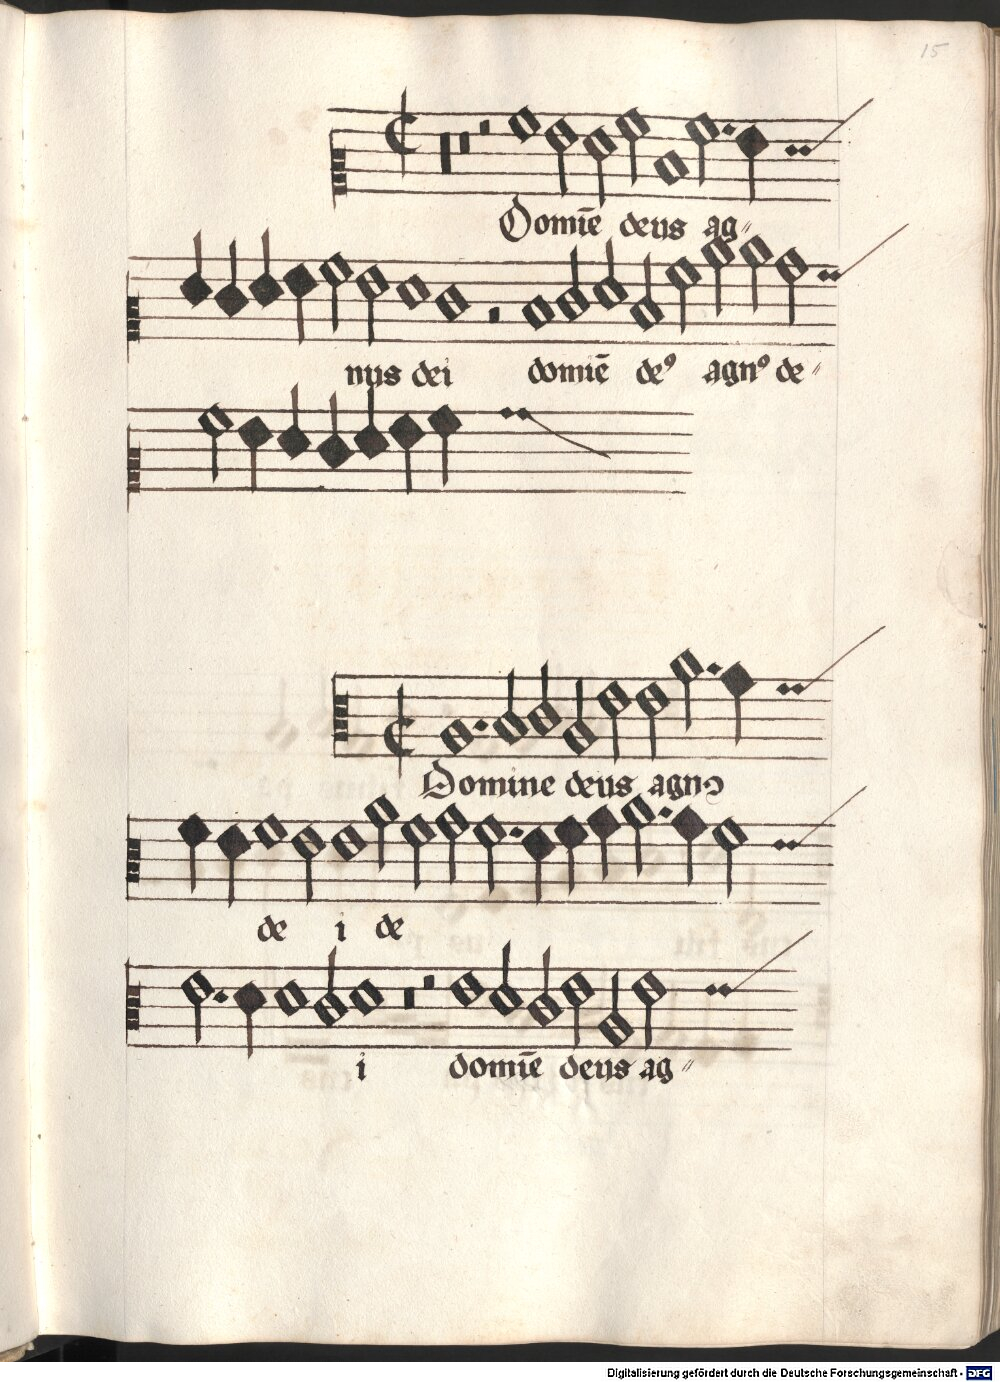 15
Domīe deus ag〃
nus dei domīe deꝰ agnꝰ de〃
Domine deus agnꝰ
de i de
i domīe deus ag〃
Digitalisierung gefördert durch die Deutsche Forschungsgemeinschaft - DFG